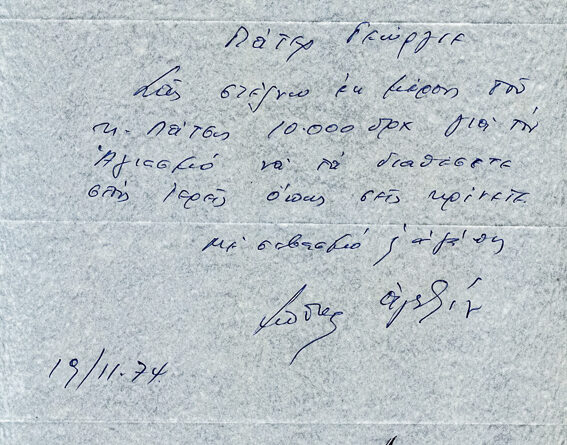 Πάτερ Γεώργιε
Σᾶς στέλνω ἐκ μέρους τοῦ
κ. Πάτση 10.000 δρχ γιὰ τὸν
Ἁγιασμό νὰ τὰ διαθέσετε
στὶς ἱερεῖς ὅπως σεῖς κρίνετε
μὲ σεβασμό
19/11.74